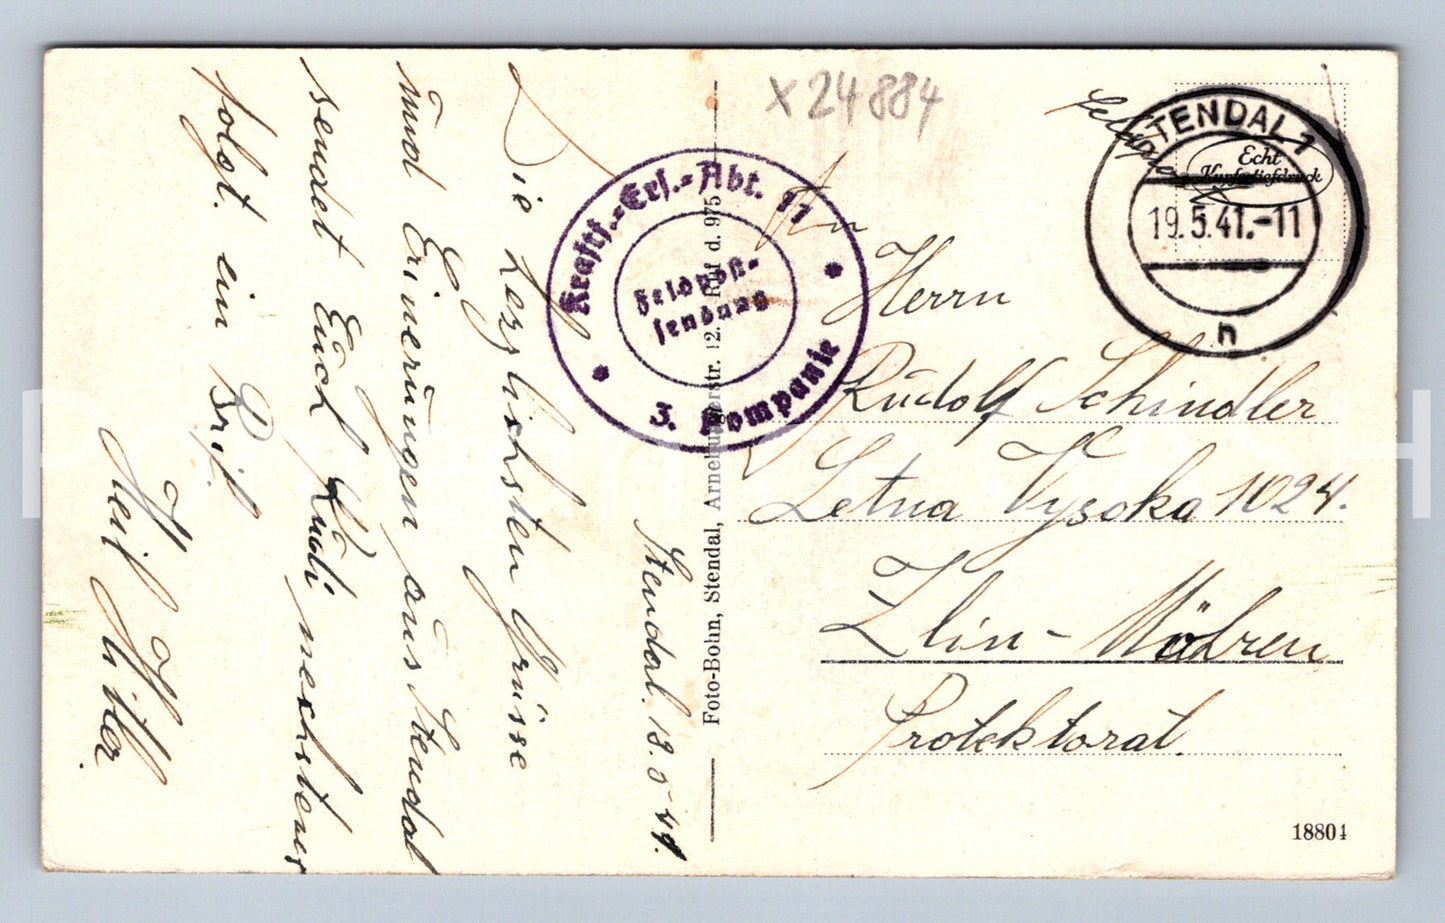 x 24884
Feldpost
STENDAL 1
Echt
Kupfertiefdruck
19.5.41.-11
h
Kraftf.=Ers.=Abt. 11
Feldpost-
sendung
3. Kompanie
An
Herrn
Rudolf Schindler
Letna Vysoka 1024.
Zlin - Mähren
Protektorat.
Stendal. 18.5.41.
Die herzlichsten Grüsse
und Erinerungen aus Stendal
sendet Euch Rudi nechstens
folgt ein Brif
Heil Hitler
Foto-Bohn, Stendal, Arneburgerstr. 12. Ruf d. 975
18804